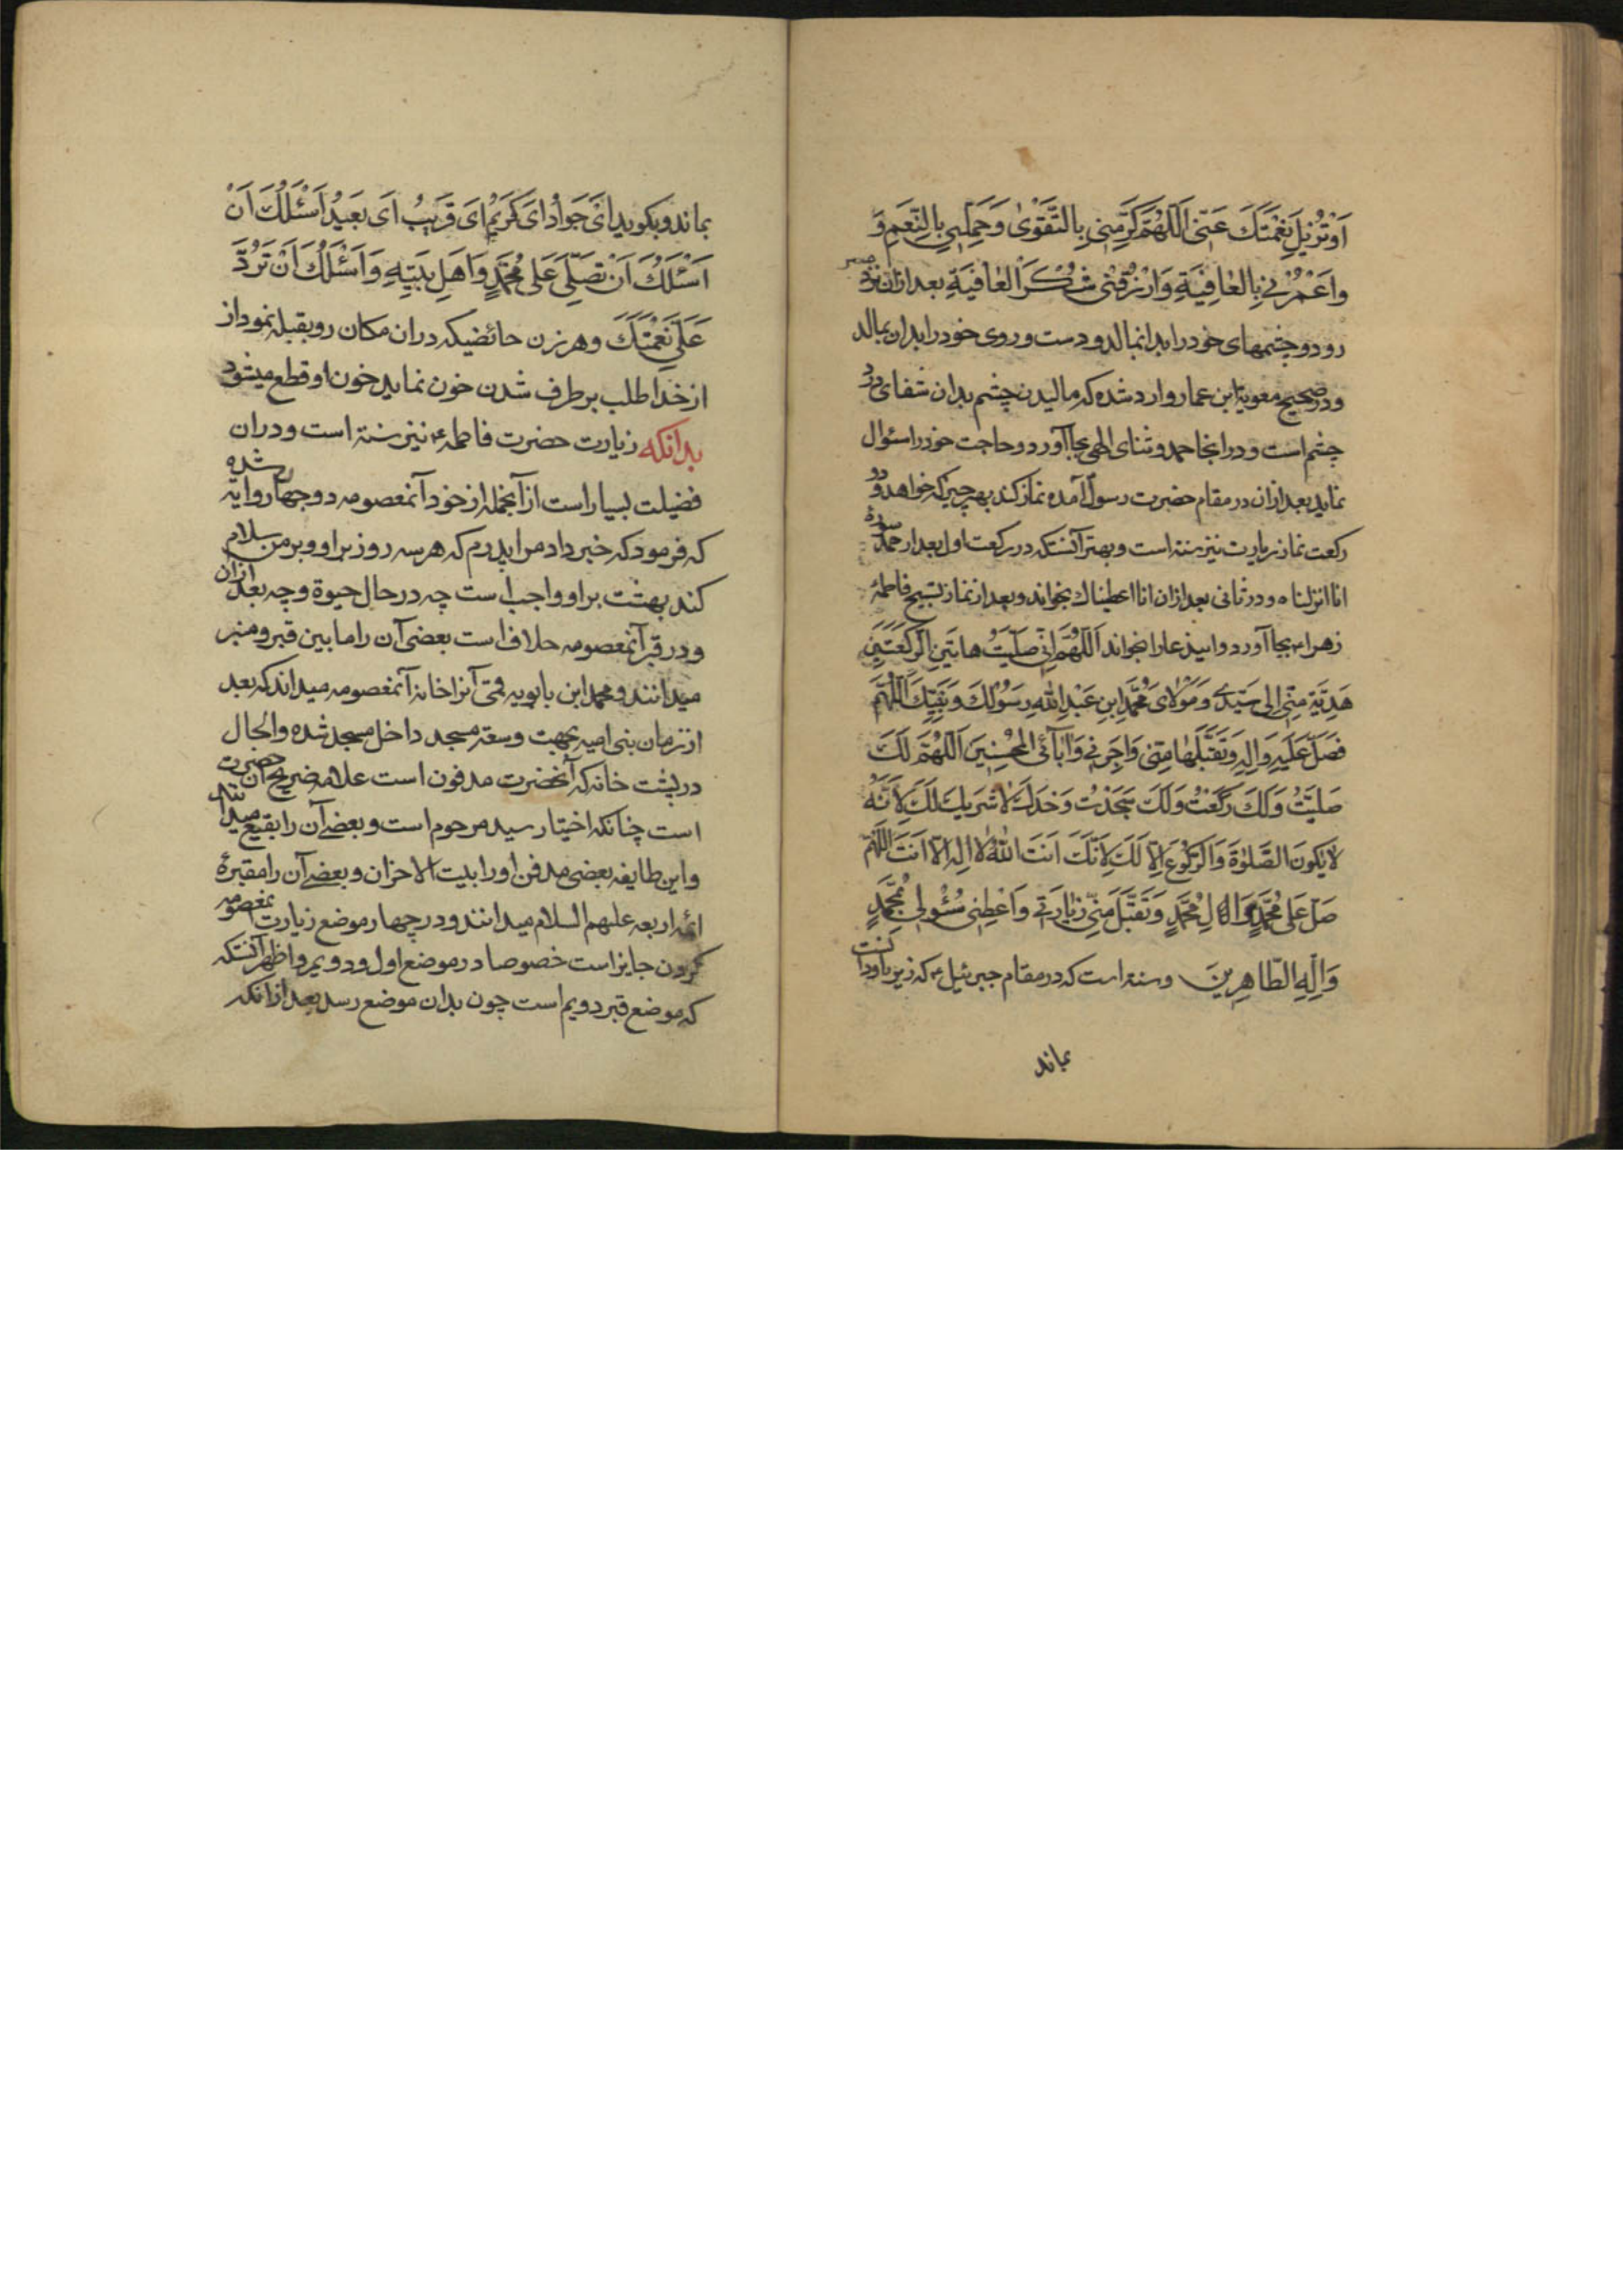 اَوْ تُزِیلَ نِعْمَتَكَ عَنّی اَللّهُمَّ کَرِّمْنی بِالتَّقْوٰی وَجَمِّلْنی بِالنِّعَمِ وَ
وَاعْمُرْنی بِالعٰافِیَةِ وَارْزُقْنی شُکْرَ العٰافِیَةِ بعد ازان نزد منبر
رود و چشمهای خود را بدانمالد و دست و روی خود را بدان بمالد
و در صحیح معویة ابن عمار وارد شده که مالیدن چشم بدان شفای درد
چشم است و در اینجا حمد و ثنای الهی بجا آورد و حاجت خود را سئوال
نماید بعد ازان در مقام حضرت رسول آمده نماز کند بهر چیز که خواهد و دو
رکعت نماز زیارت نیز سنة است و بهتر آنستکه در رکعت اول بعد از حمد سوره
انا انزلناه و در ثانی بعد ازان انا اعطیناك بخواند و بعد از نماز تسبیح فاطمهٔ
زهرا ء بجا آورد و ایندعا را بخواند اَللّهُمَّ اِنّی صَلَّیْتُ هاتَیْنِ الرَّکْعَتَیْنِ
هَدِیَّةً مِنّی اِلی سَیِّدی وَ مَوْلٰایَ مُحَمَّدِ ابنِ عَبْدِ اللهِ رَسُولِكَ وَ نَبِیِّكَ اَللّهُمَّ
فَصَلِّ عَلَیهِ وَالِهِ وَ تَقَبَّلْهٰا مِنّی وَاجِرْنی وَ اٰبآئی المُحْسِنِینَ اَللّهُمَّ لَكَ
صَلَّیْتُ وَلَكَ رَکَعْتُ وَلَكَ سَجَدْتُ وَحْدَكَ لٰا شَرِیكَ لَكَ لِاَنَّهُ
لایَکُونَ الصَّلوٰةَ وَالرُّکُوعَ اِلّا لَكَ لِاَنَّكَ اَنتَ اللّٰهُ لا اِلهَ اِلّا اَنتَ اللّهُمَّ
صَلِّ عَلی مُحَمَّدٍ وَالٰ مُحَمَّدٍ وَ تَقَبَّلْ مِنّی زِیٰارَتی وَ اَعْطِنی سُئْولی بِمُحَمَّدٍ
وَالِهِ الطّاهِرِینَ وسنة است که در مقام جبرئیل ء که زیر ناودانست
بماند
بماند و بکوید اَیْ جَوادُ اَیْ کَرِیْمُ اَیْ قَرِیبُ اَیْ بَعِیْدُ اَسْئَلُكَ اَنْ
اَسْئَلُكَ اَنْ تُصَلِّیَ عَلی مُحَمَّدٍ وَاَهْلِ بَیْتِهِ وَاَسْئَلُكَ اَنْ تَرُدَّ
عَلَیَّ نِعْمَتَكَ و هر زن حائضیکه دران مکان رو بقبله نمود از
از خدا طلب برطرف شدن خون نماید خون او قطع میشود
بدانکه زیارت حضرت فاطمه ء نیز سنة است و دران
فضیلت بسیار است از آنجمله از خود آنمعصومه دو چهار روایة شده
که فرمود که خبر داد مرا پدرم که هر سه روز بر او و بر من سلام
کند بهشت بر او واجب است چه در حال حیوة و چه بعد ازان
و در قبر آنمعصومه خلاف است بعضی آن را ما بین قبر و منبر
میدانند و محمد ابن بابویه قمّی آنرا خانهٔ آنمعصومه میداند که بعد
از زمان بنی امیه بجهت وسعة مسجد داخل مسجد شده والحال
در پشت خانه که آنحضرت مدفون است علامه ضریح آن حضرت
است چنانکه اختیار سید مرحوم است و بعضی آن را بقیع میدانند
و این طایفه بعضی مدفن او را بیت الاحزان و بعضی آن را مقبرهٔ
ائمه اربعه علیهم السلام میدانند و در چهار موضع زیارت معصومه
کردن جایز است خصوصا در موضع اول و دویم و اظهر آنستکه
که موضع قبر دویم است چون بدان موضع رسد بعد ازانکه